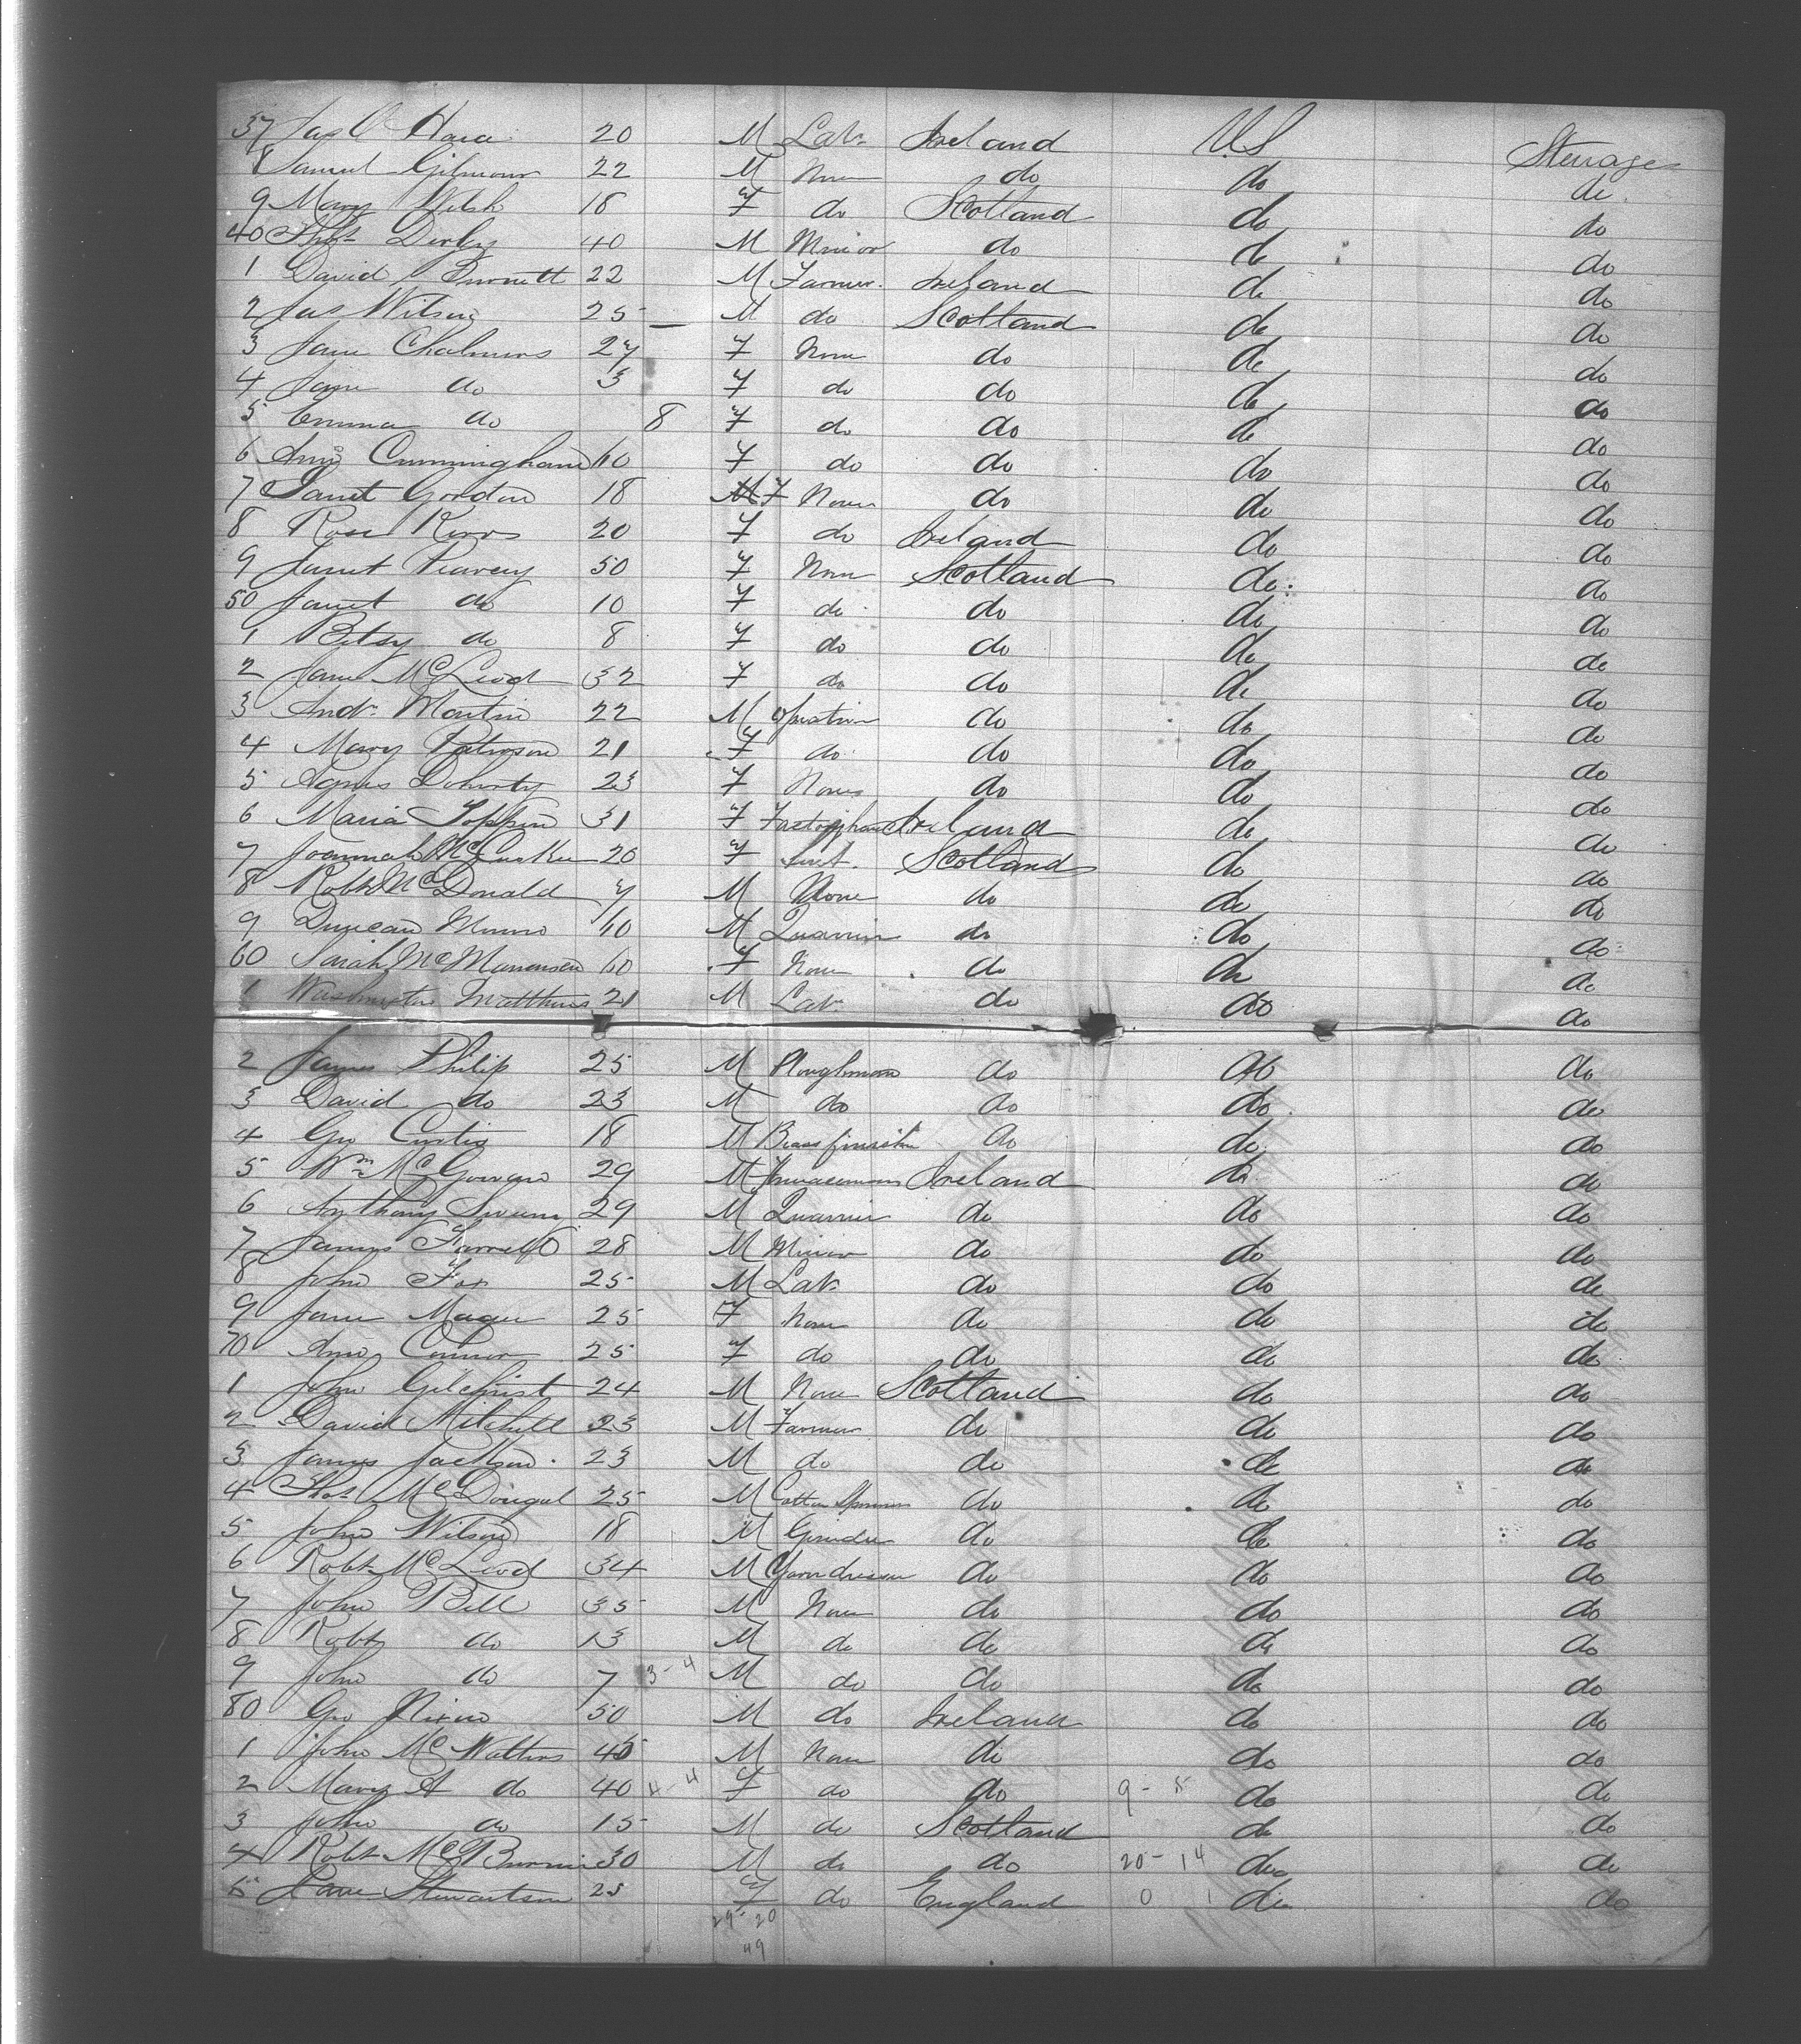 37 Jas O'Hara 20 M Lab. Ireland US Steerage
8 Samuel Gilmour 22 M None do do do
9 Mary Welsh 18 F do Scotland do do
40 Thos Derby 40 M Minor do do do
1 David Burnett 22 M Farmer Ireland do do
2 Jas Wilson 25 M do Scotland do do
3 Jane Chalmers 27 F None do do do
4 Jane do 3 F do do do do
5 Emma do 8 F do do do do
6 Ann Cunningham 60 F do do do do
7 Janet Gordon 18 F None do do do
8 Rose 20 F do Ireland do do
9 Janet 50 F None Scotland do do
50 Janet do 10 F do do do do
1 Betsy do 8 F do do do do
2 Jane McLeod 32 F do do do do
3 Andr. Martin 22 M do do do
4 Mary Paterson 21 F do do do do
5 Agnes Doherty 23 F None do do do
6 Maria Toppin 31 F Ireland do do
7 Joannah McCusker 20 F Servt. Scotland do do
8 Robt McDonald 7 M None do do do
9 Duncan Munro 40 M Quarrier do do do
60 Sarah 60 F None do do do
1 Washington Matthews 21 M Lab. do do do
2 James Philip 25 M Ploughman do do do
3 David do 23 M do do do do
4 Geo Curtis 18 M Brassfinisher do do do
5 Wm McGowan 29 M Ireland do do
6 Anthony 29 M Quarrier do do do
7 James Farrell 28 M Minor do do do
8 John Fox 25 M Lab do do do
9 Jane Magee 25 F None do do do
70 Ann Connor 25 F do do do do
1 John Gilchrist 24 M None Scotland do do
2 David Mitchell 23 M Farmer do do do
3 James Jackson 23 M do do do do
4 Thos McDougal 25 M Cotton Spinner do do do
5 John Wilson 18 M Grinder do do do
6 Robt McLeod 34 M Yarndresser do do do
7 John Bell 35 M None do do do
8 Robt do 13 M do do do do
9 John do 7 3-4 M do do do do
80 Geo Nixon 50 M do Ireland do do
1 John McWatters 45 M None do do do
2 Mary A do 40 4-4 F do do 9-5 do do
3 John do 15 M do Scotland do do
4 Robt 30 M do do 20-14 do do
5 Jane Stewartson 25 F do England 0 1 do do
29-20
49